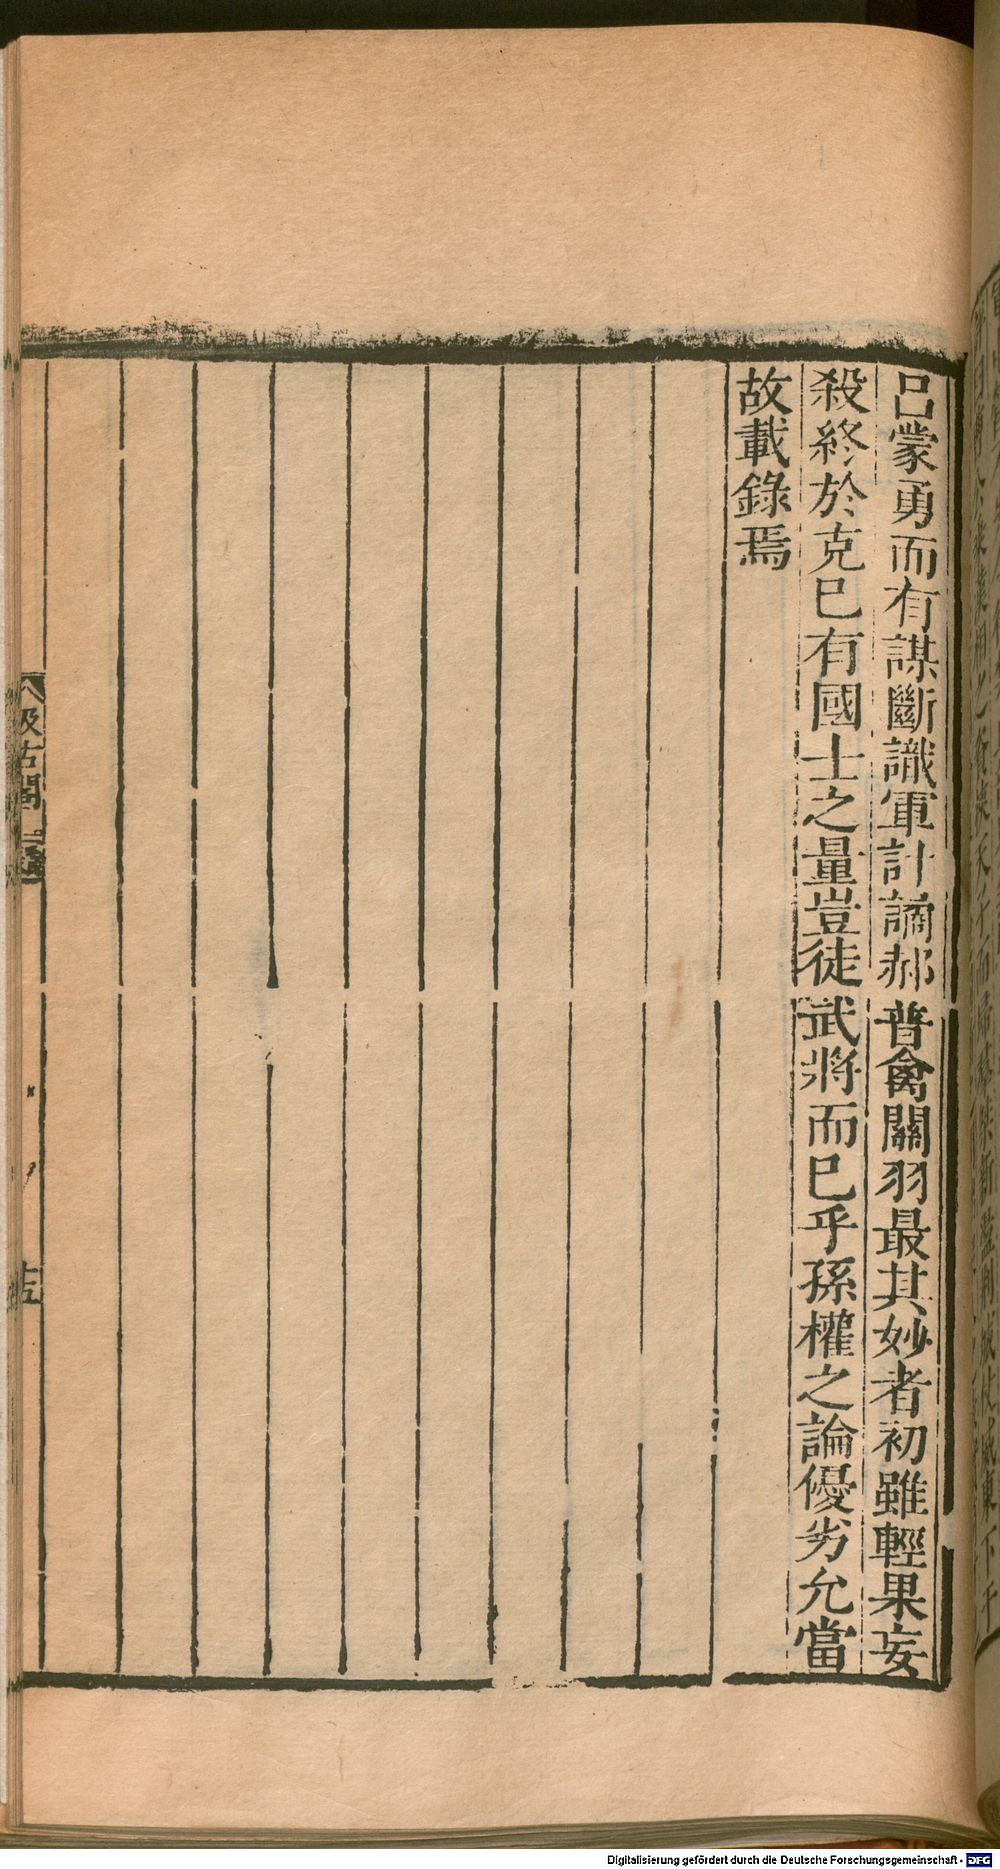 呂蒙勇而有謀斷識軍計譎郝普禽關羽最其妙者初雖輕果妄
殺終於克已有國士之量豈徒武將而已乎孫權之論優劣允當
故載錄焉
汲古閣
Digitalisierung gefördert durch die Deutsche Forschungsgemeinschaft - DFG